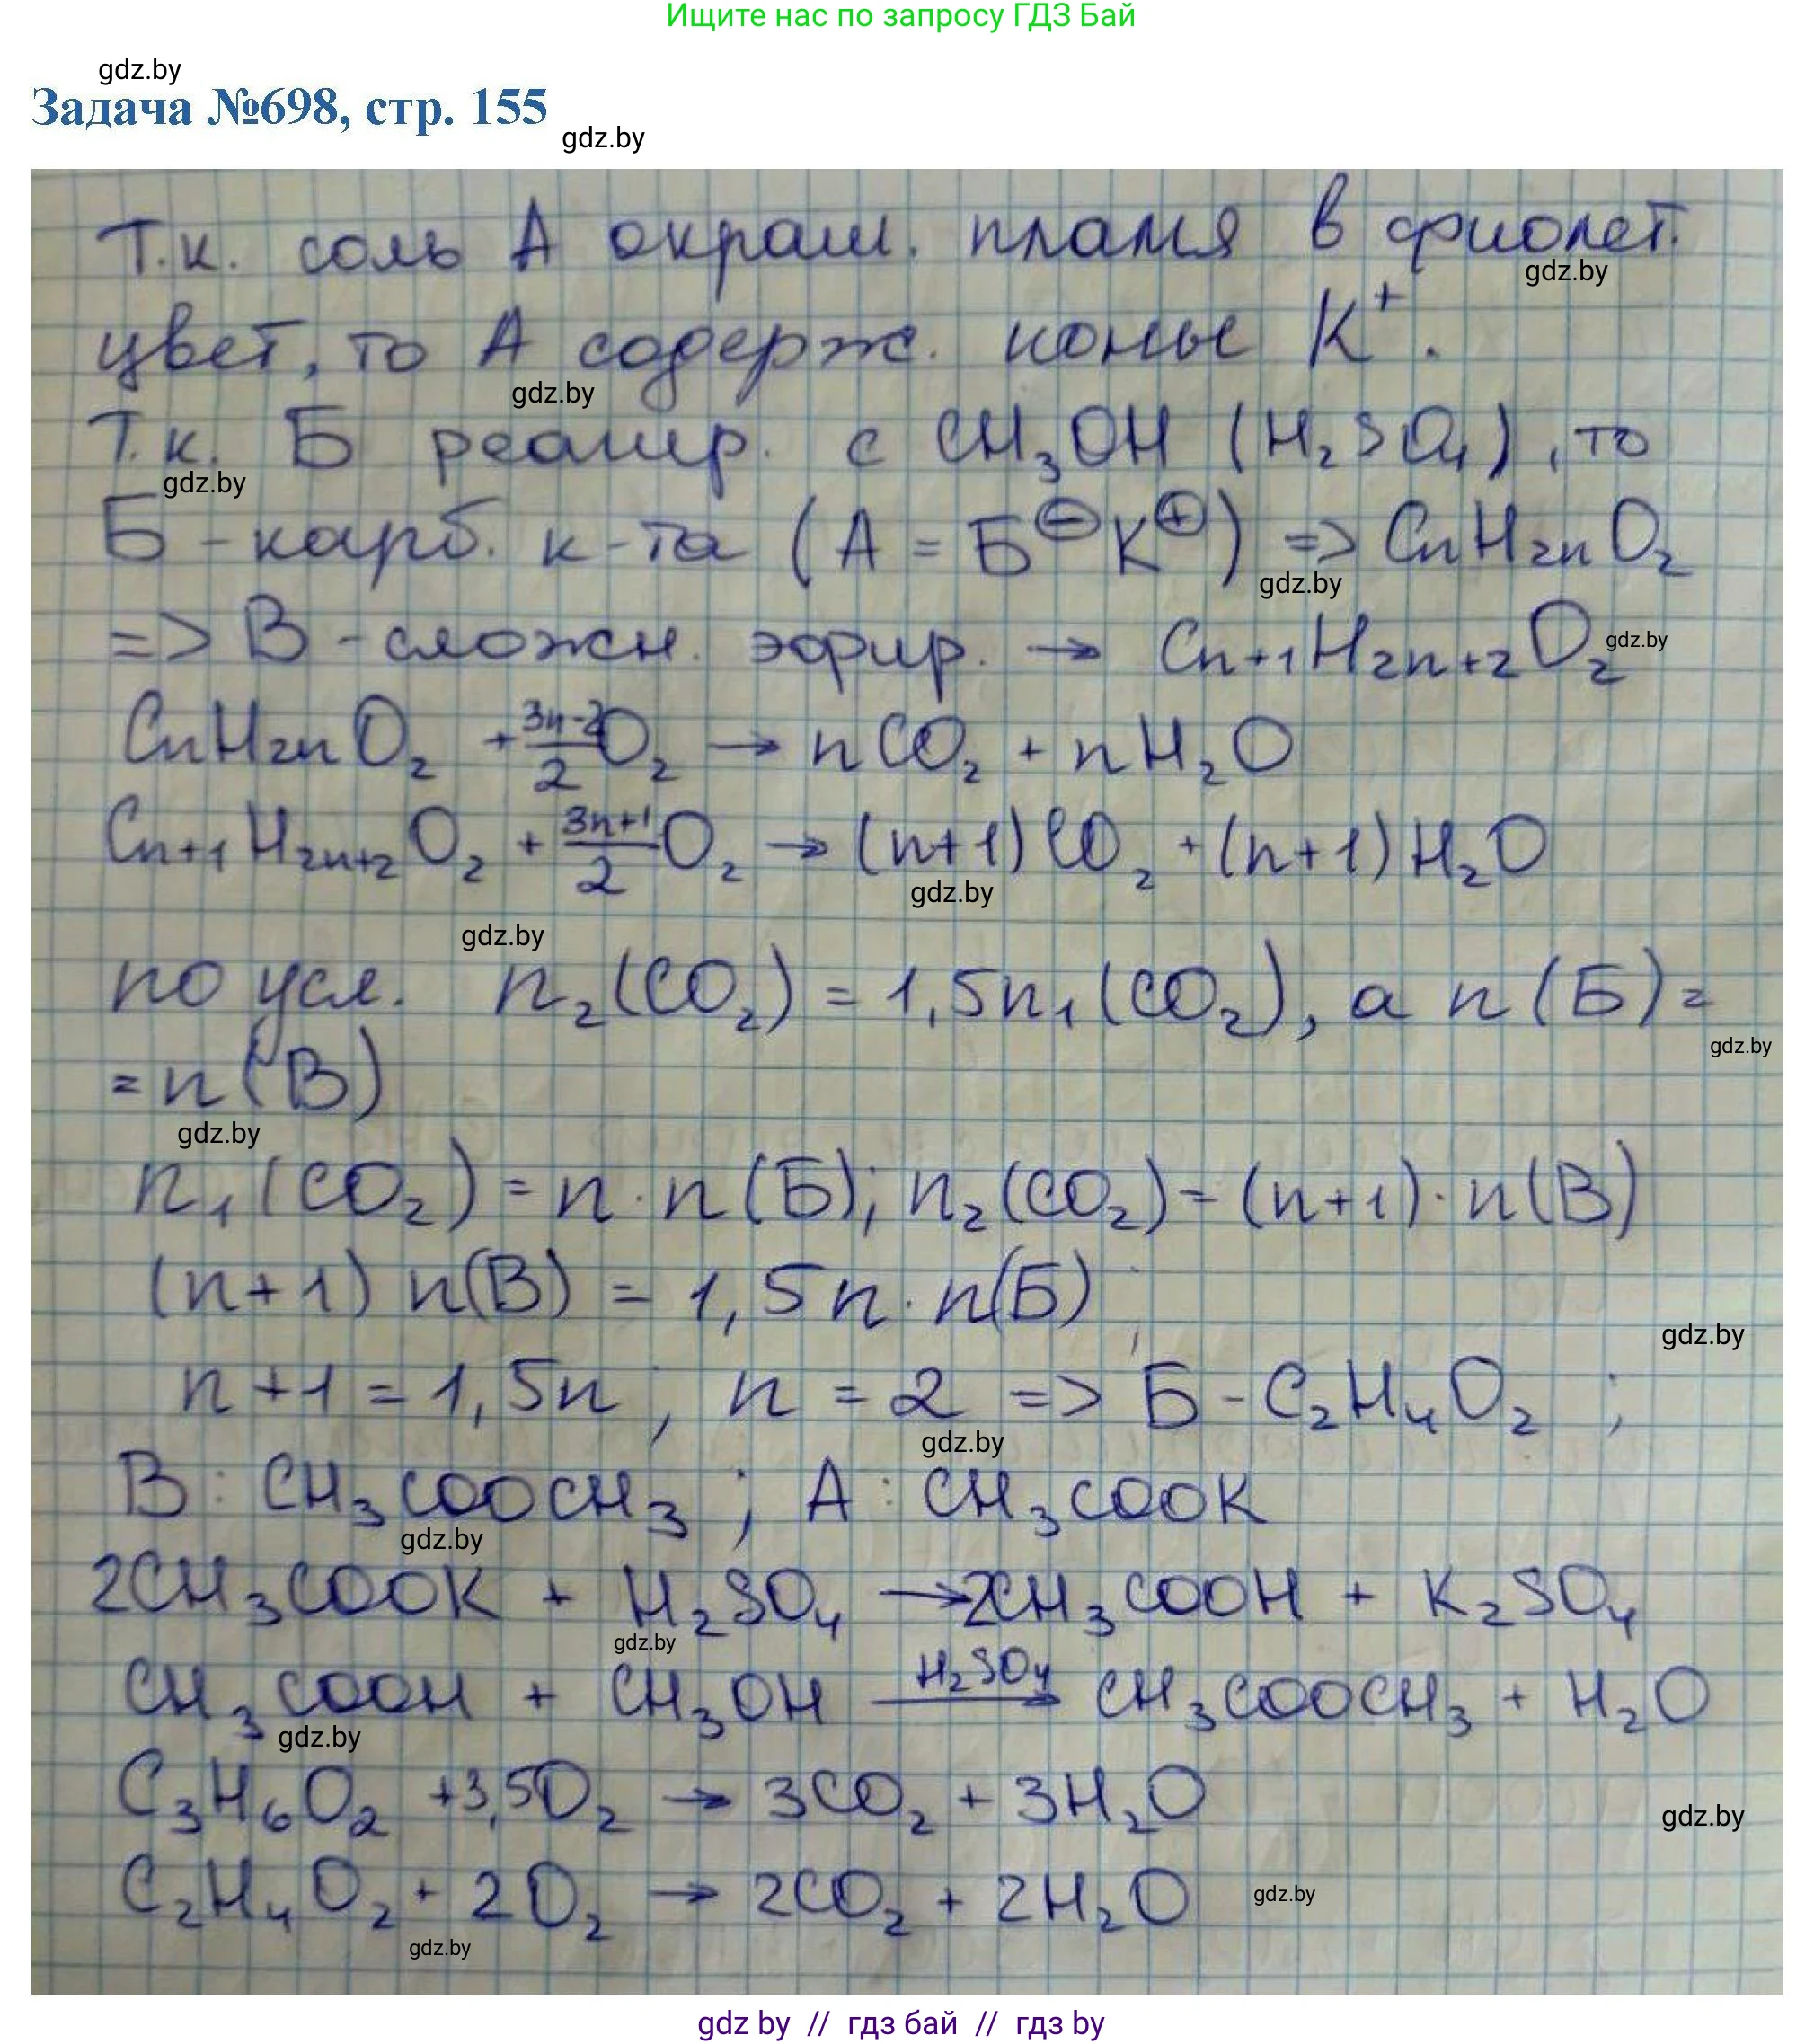 Ищите нас по запросу ГДЗ Бай
gdz.by
Задача №698, стр. 155
gdz.by
Т.к. соль А окраш. пламя в фиолет.
gdz.by
цвет, то А содерж. ионы K⁺.
gdz.by
Т.к. Б реагир. с CH₃OH (H₂SO₄), то
gdz.by
Б - карб. к-та (А = Б⊖K⊕) => CnH₂nO₂
gdz.by
=> В - сложн. эфир. → Cn+1H2n+2O₂
gdz.by
CnH₂nO₂ + (3n-2)/2 O₂ → nCO₂ + nH₂O
Cn+1H2n+2O₂ + (3n+1)/2 O₂ → (n+1)CO₂ + (n+1)H₂O
gdz.by
gdz.by
по усл. n₂(CO₂) = 1,5n₁(CO₂), а n(Б) =
gdz.by
= n(В)
gdz.by
n₁(CO₂) = n · n(Б); n₂(CO₂) = (n+1) · n(В)
(n+1) n(В) = 1,5n · n(Б)
gdz.by
n+1 = 1,5n; n = 2 => Б - C₂H₄O₂;
gdz.by
В: CH₃COOCH₃; А: CH₃COOK
gdz.by
2CH₃COOK + H₂SO₄ → 2CH₃COOH + K₂SO₄
gdz.by
CH₃COOH + CH₃OH —H₂SO₄→ CH₃COOCH₃ + H₂O
gdz.by
C₃H₆O₂ + 3,5O₂ → 3CO₂ + 3H₂O
gdz.by
C₂H₄O₂ + 2O₂ → 2CO₂ + 2H₂O
gdz.by
gdz.by
gdz by // гдз бай // гдз by